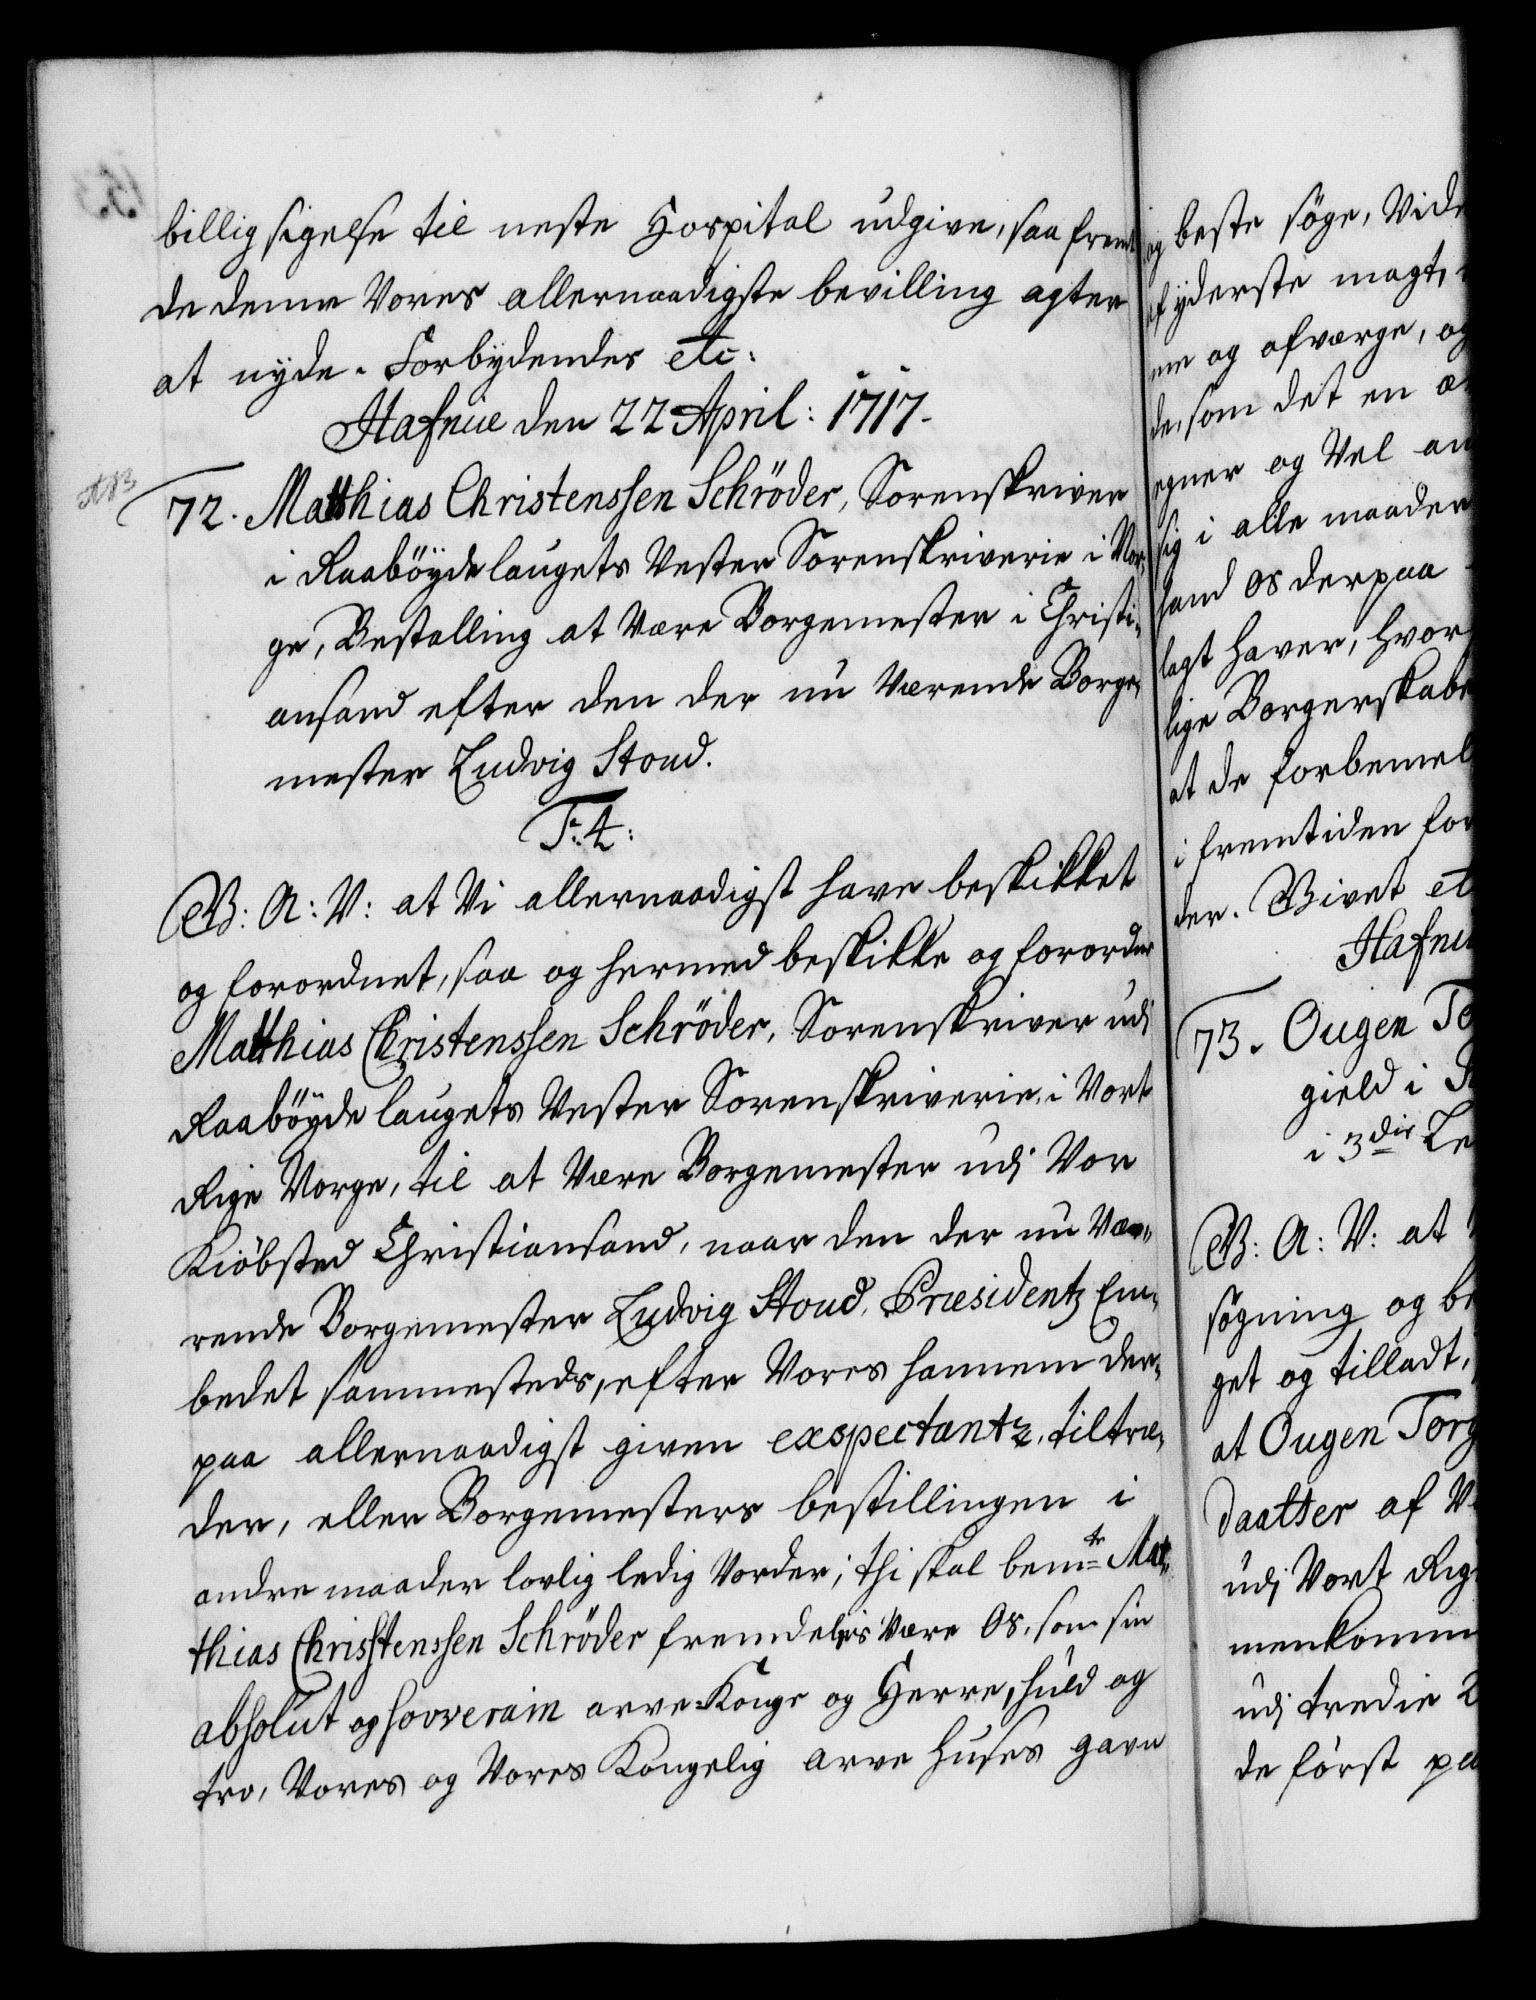 billig sigelse til neste Hospital udgive, saa fremt
de denne Vores allernaadigste bevilling agter
at nyde. Forbydendes etc:
Hafniæ den 22 April: 1717.
NB
72. Matthias Christenssen Schröder, Sorenskriver
i Raaböydelaugets Vester Sorenskriverie i Nor-
ge, Bestalling at Være Borgemester i Christi-
ansand efter den der nu Værende Borge-
mester Ludvig Stoud.
F: 4:
C G: A: V: at Vi allernaadigst have beskikket
og forordnet, saa og hermed beskikke og forordner
Matthias Christenssen Schröder, Sorenskriver udj
Raaböyde laugets Vester Sorenskriverie, i Vort
Rige Norge, til at Være Borgemester udj Vor
Kiöbsted Christiansand, naar den der nu Væ-
rende Borgemester Ludvig Stoud, Præsidentz Em-
bedet sammesteds, efter Vores hannem der-
paa allernaadigst given exspectantz, tiltræ-
der, eller Borgemesters bestillingen i
andre maader lovlig ledig Vorder; thi skal bemte Mat-
thias Christenssen Schröder fremdelis Være Os, som sin
absolut og souverain arve-Konge og Herre, huld og
tro, Vores og Vores Kongelig arve Huses gavn
og beste söge, Vide
af yderste magt,
me og afværge, og
de, som det en æ
egner og Vel an
sig i alle maader
hand Os derpaa
lagt haver, hvor
lige Borgerskabe
at de forbemel
i fremtiden for
der. Givet et
Hafni
73. Ougen To
gield i
i 3die Le
G: A: V: at
søgning og be
get og tilladt,
at Ougen Torg
daatter af V
udj Vort Rig
menkomm
udj tredie L
de först pa